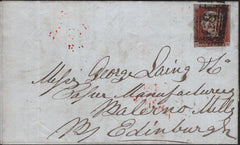 Messrs George Laing & Co
Paper Manufacturers
Balerno Mills
By Edinburgh